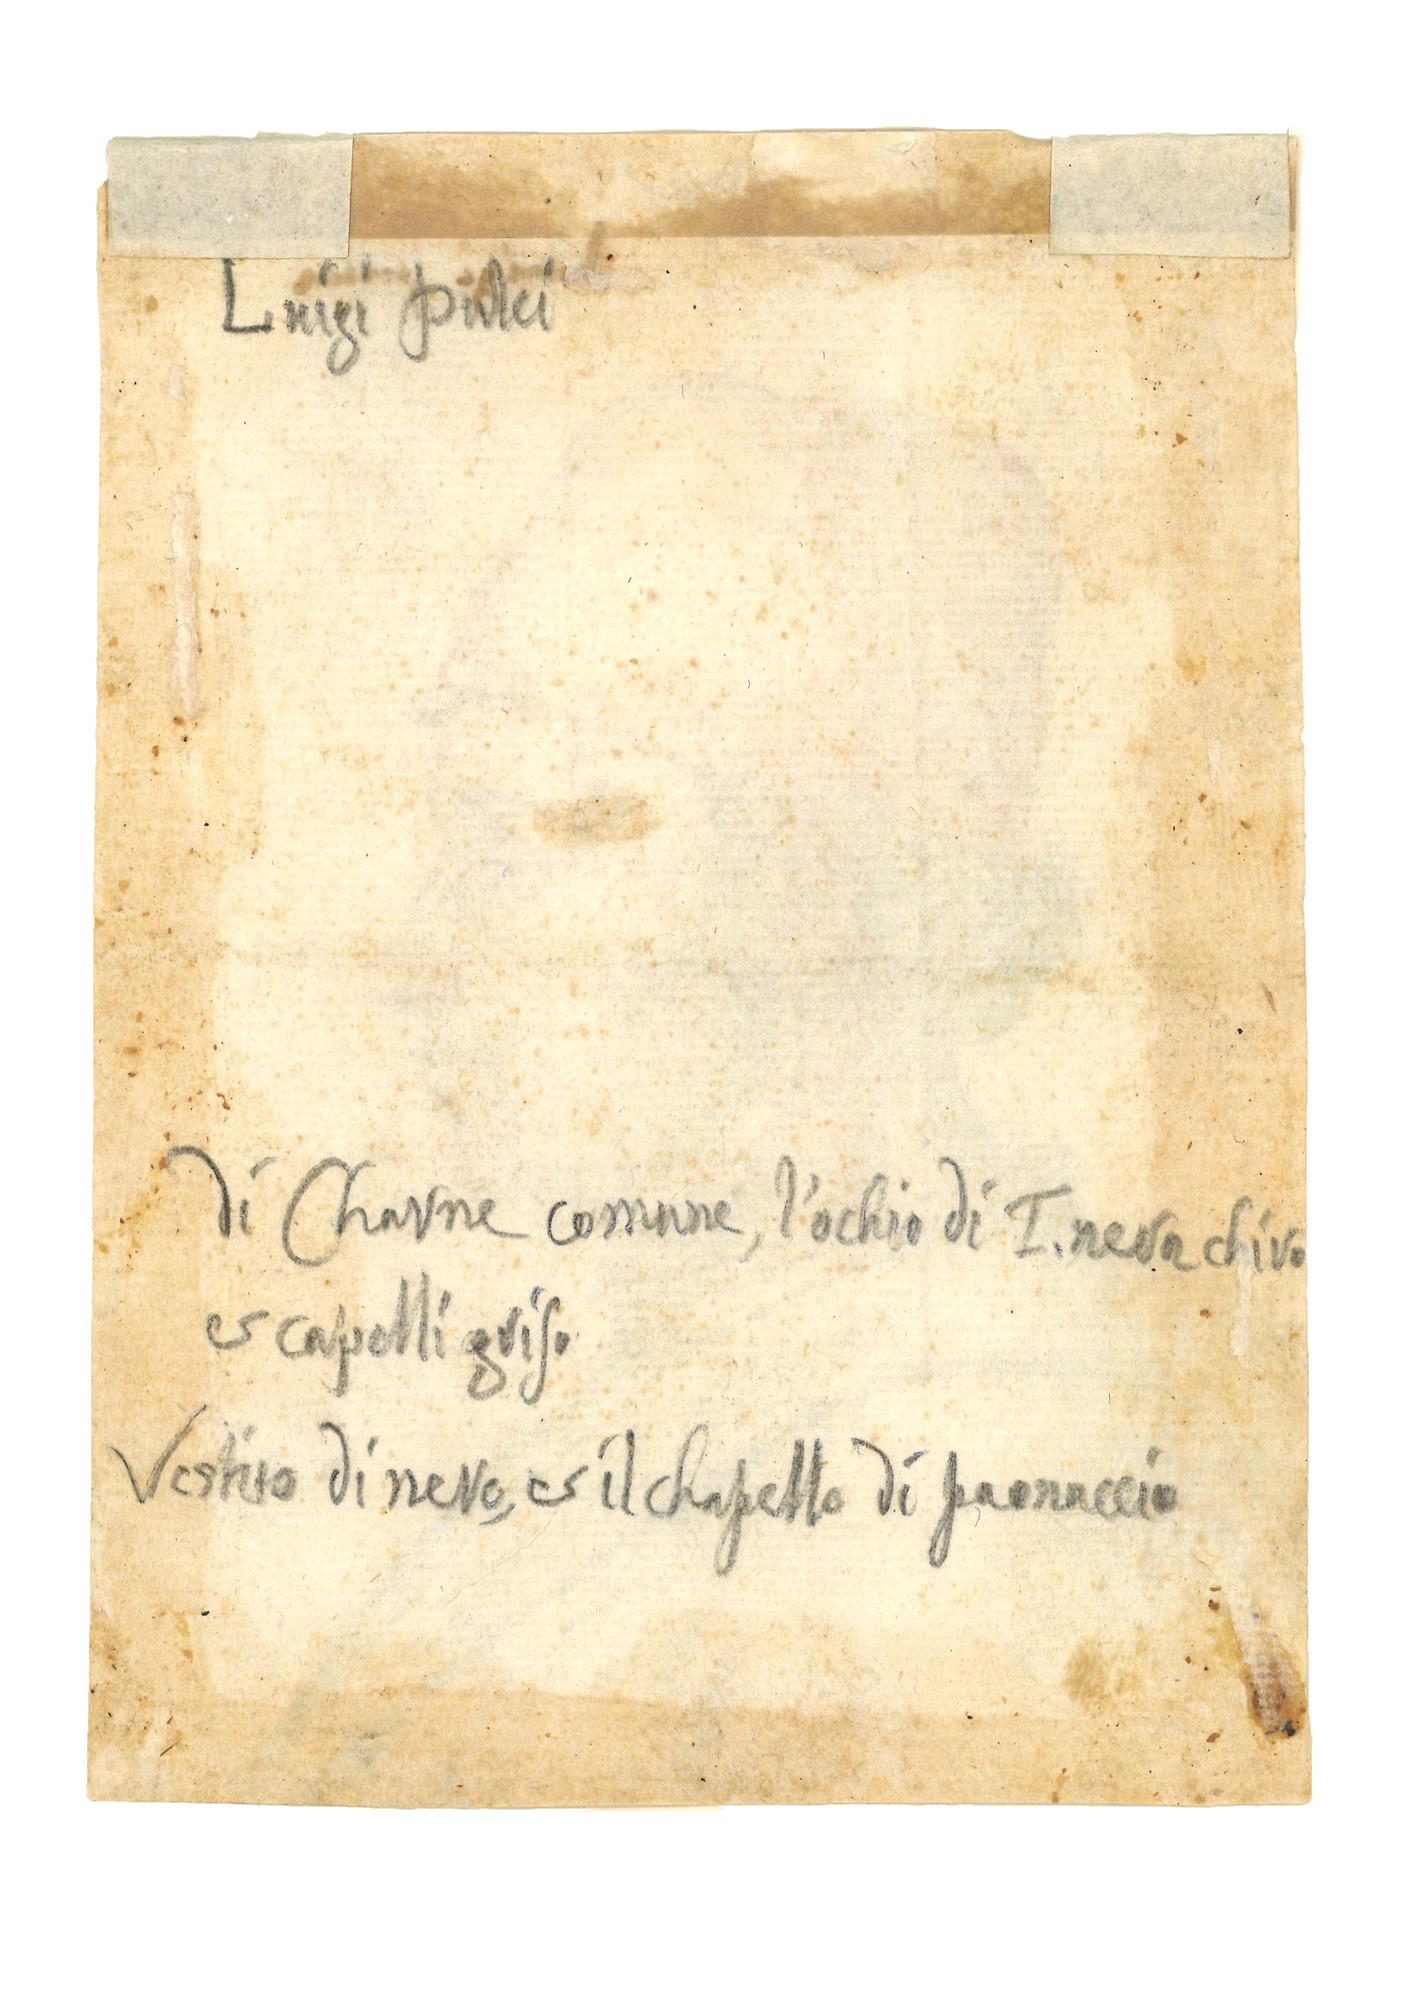 Luigi pulci
di Charne comune, l'ochio di
es capelli griso
Vestito di nero, es il chapello di paonaccio